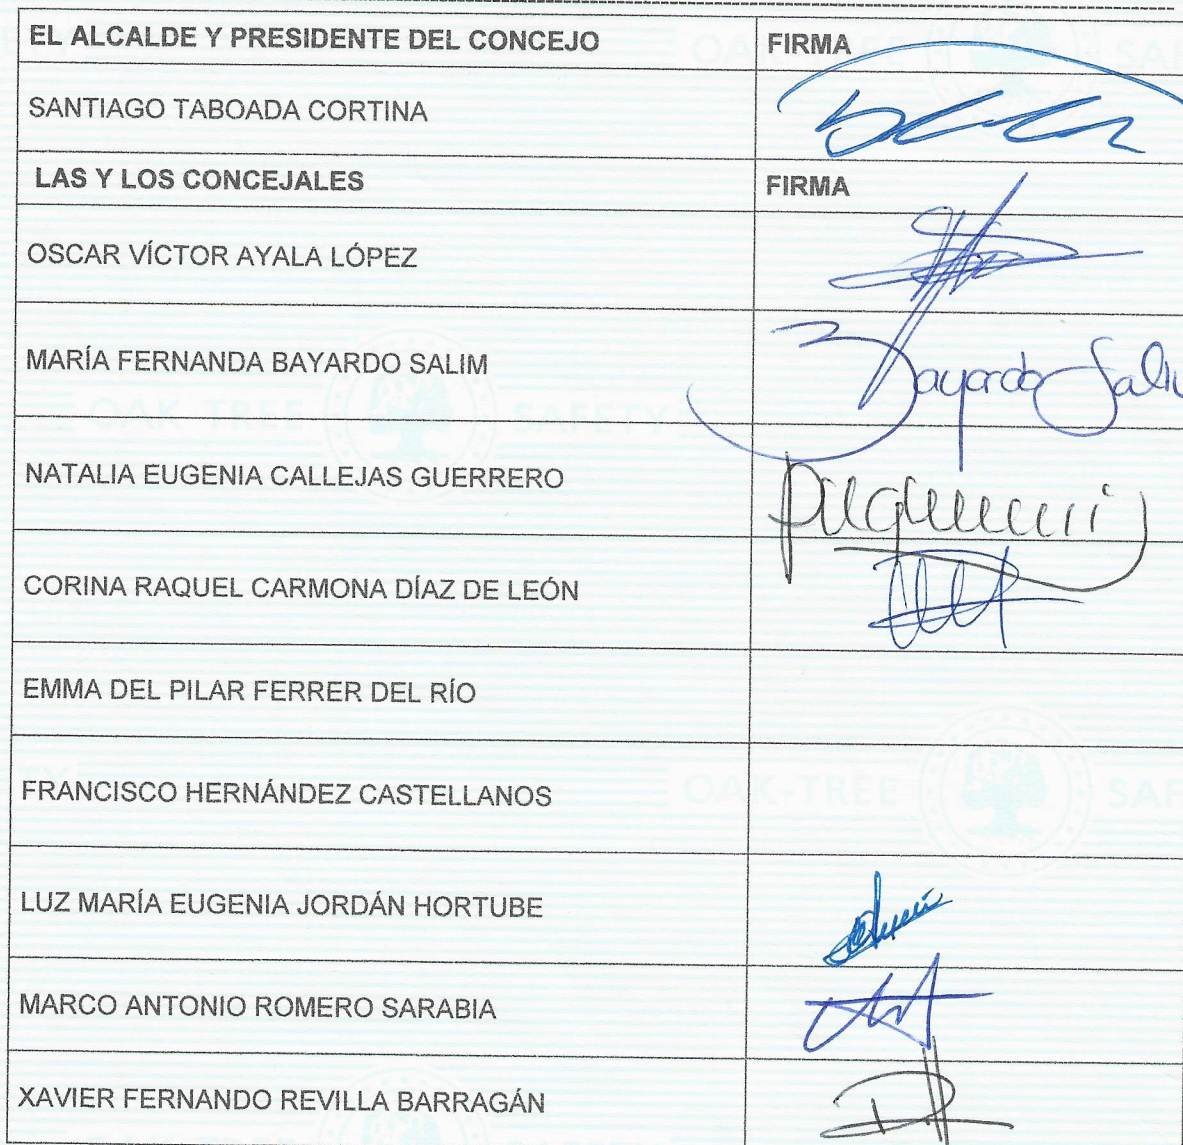 EL ALCALDE Y PRESIDENTE DEL CONCEJO FIRMA
SANTIAGO TABOADA CORTINA
LAS Y LOS CONCEJALES FIRMA
OSCAR VÍCTOR AYALA LÓPEZ
MARÍA FERNANDA BAYARDO SALIM Bayardo Salim
NATALIA EUGENIA CALLEJAS GUERRERO
CORINA RAQUEL CARMONA DÍAZ DE LEÓN
EMMA DEL PILAR FERRER DEL RÍO
FRANCISCO HERNÁNDEZ CASTELLANOS
LUZ MARÍA EUGENIA JORDÁN HORTUBE
MARCO ANTONIO ROMERO SARABIA
XAVIER FERNANDO REVILLA BARRAGÁN
OAK-TREE SAFETY
OAK-TREE SAFETY
OAK-TREE SAF